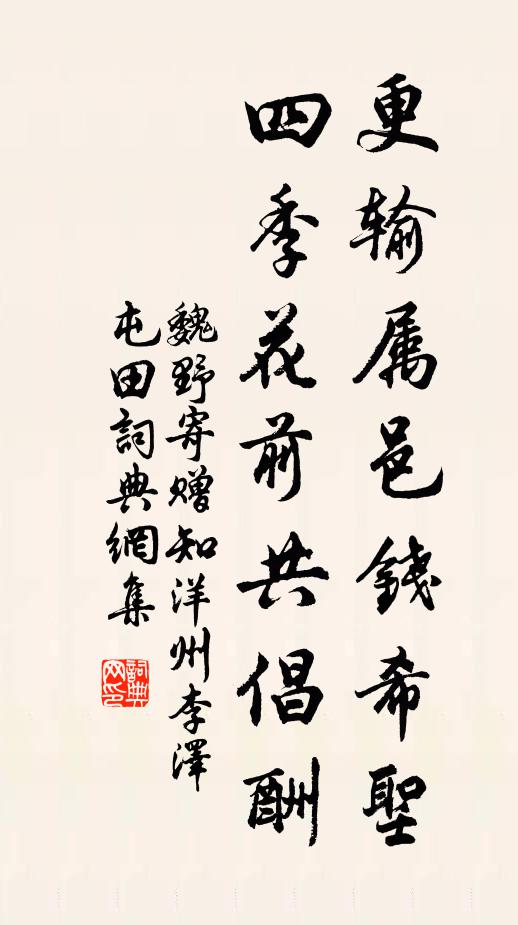 更输属邑錢希聖
四季花前共倡酬
魏野寄贈知洋州李澤
屯田詞典網集
詞典网印